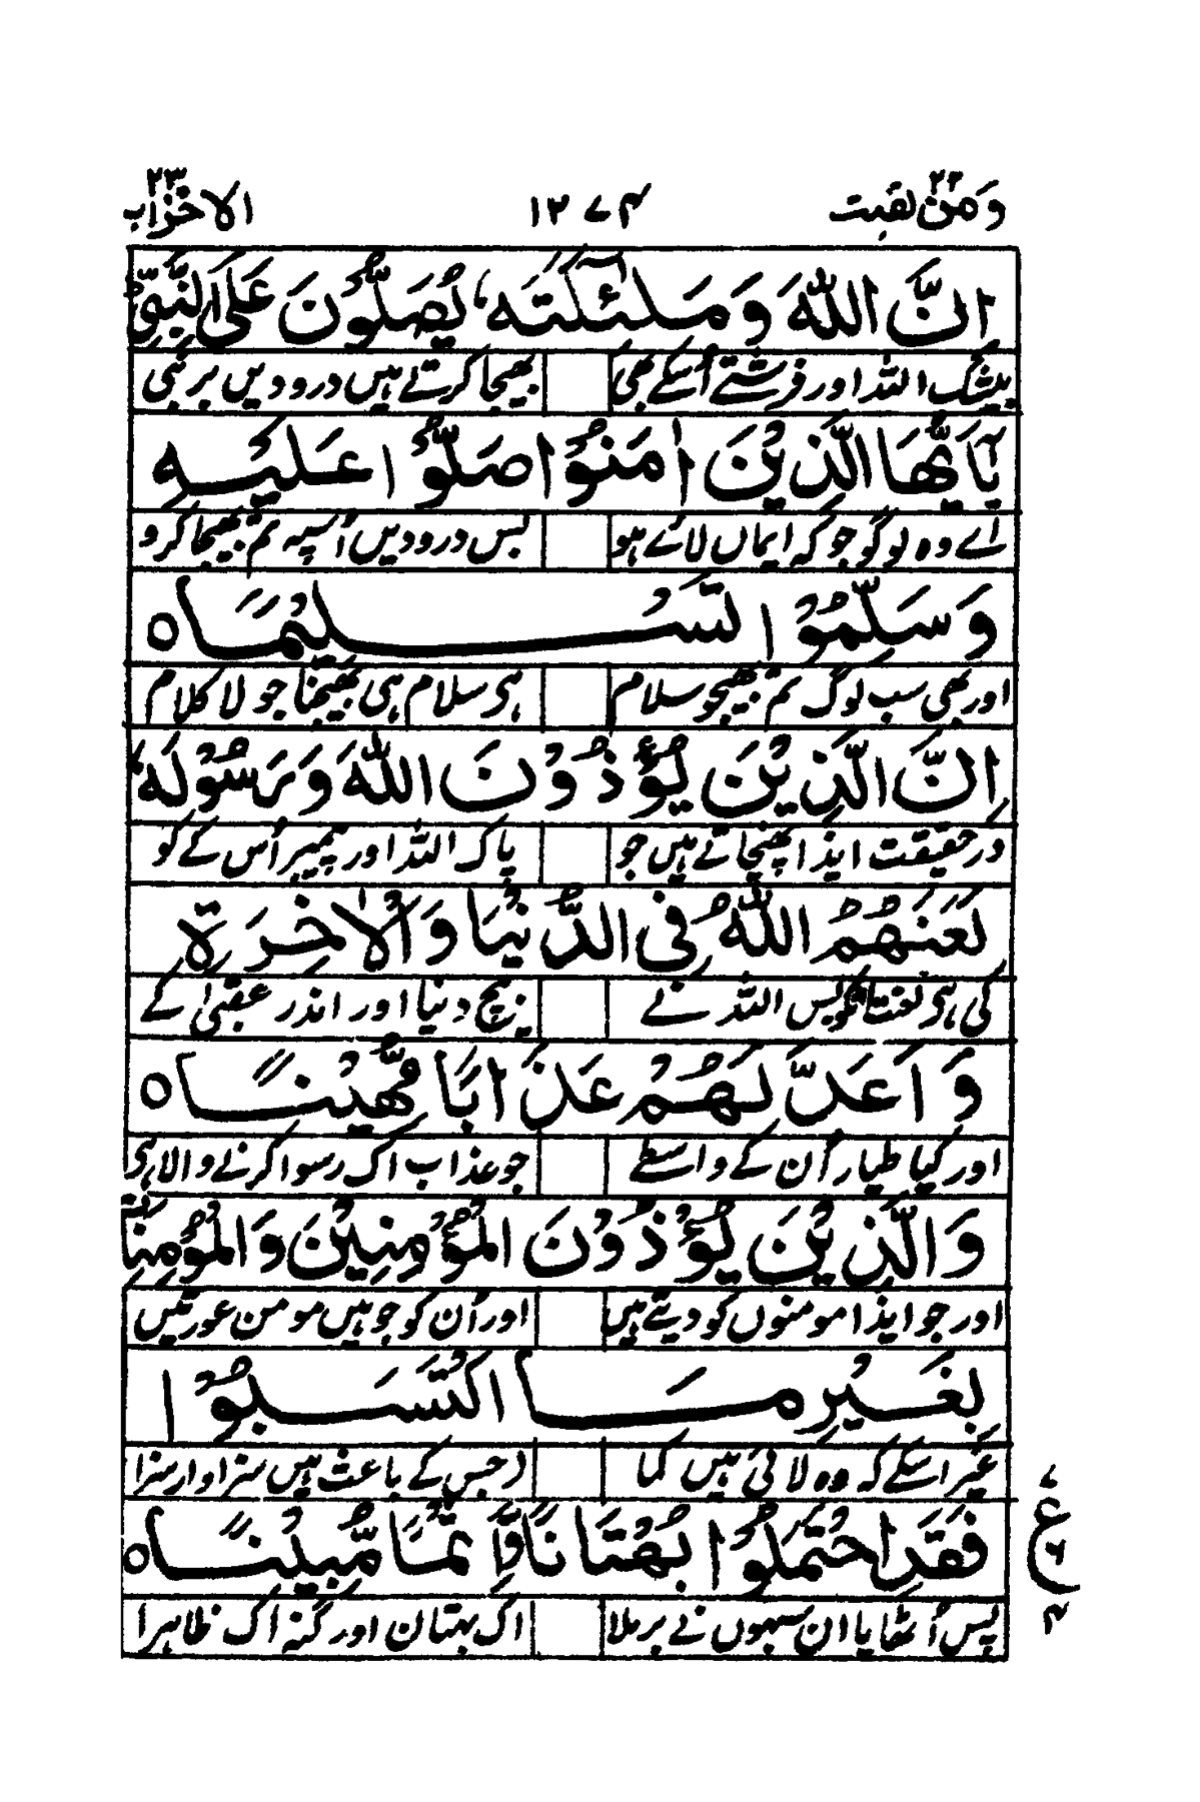 ومن يقنت ٢٢ ١٢٧٤ الاحزاب ٣٣
اِنَّ اللّٰهَ وَمَلٰٓئِكَتَهٗ يُصَلُّوْنَ عَلَى النَّبِيِّ ؕ
بیشک اللہ اور فرشتے اُسکے بھی بھیجا کرتے ہیں درودیں بر نبی
يٰٓاَيُّهَا الَّذِيْنَ اٰمَنُوْا صَلُّوْا عَلَيْهِ
اے وہ لوگو جو کہ ایماں لائے ہو بس درودیں اُسپہ تم بھیجا کرو
وَسَلِّمُوْا تَسْلِيْمًا ۝
اور بھی سب لوگ تم بھیجو سلام ہی سلام ہی بھیجنا جو لا کلام
اِنَّ الَّذِيْنَ يُؤْذُوْنَ اللّٰهَ وَرَسُوْلَهٗ
درحقیقت ایذا پہنچاتے ہیں جو پاک اللہ اور پیمبر اُس کے کو
لَعَنَهُمُ اللّٰهُ فِي الدُّنْيَا وَالْاٰخِرَةِ
کی ہی لعنت بس اللہ نے بیچ دنیا اور اندر عقبیٰ کے
وَاَعَدَّ لَهُمْ عَذَابًا مُّهِيْنًا ۝
اور کیا طیار اُن کے واسطے جو عذاب اک رسوا کرنے والا ہی
وَالَّذِيْنَ يُؤْذُوْنَ الْمُؤْمِنِيْنَ وَالْمُؤْمِنٰتِ
اور جو ایذا مومنوں کو دیتے ہیں اور اُن کو جو ہیں مومن عورتیں
بِغَيْرِ مَا اكْتَسَبُوْا
غیر اسکے کہ وہ لائی ہیں کما جس کے باعث ہیں سزاوار سزا
فَقَدِ احْتَمَلُوْا بُهْتَانًا وَّاِثْمًا مُّبِيْنًا ۝
پس اُٹھایا ان سبہوں نے برملا اک بہتان اور گنہ اک ظاہرا
٧
ع
٦
٤